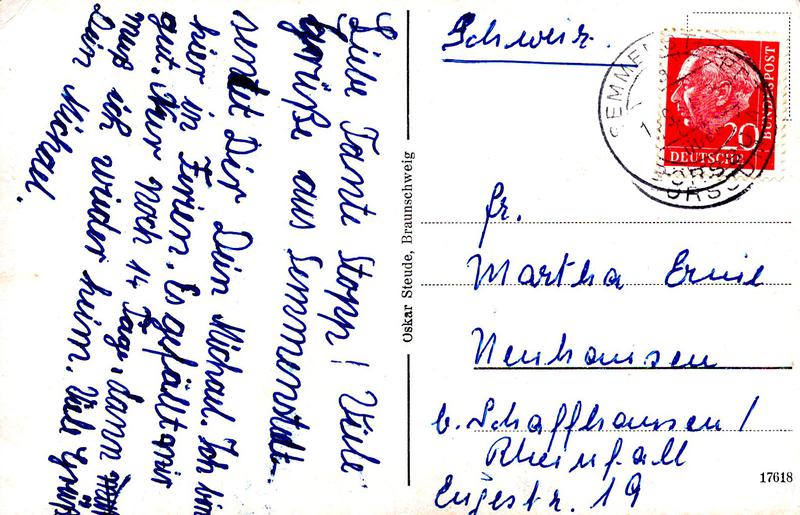 Liebe Tante Stopp! Viele
Grüße aus Semmenstedt
sendet Dir Dein Michael. Ich bin
hier in Ferien. Es gefällt mir
gut. Nur noch 14 Tage, dann
muß ich wieder heim. Viele Grüße
Dein Michael.
Oskar Steude, Braunschweig
Schweiz.
SEMMENSTEDT
DEUTSCHE
BUNDESPOST
20
Fr.
Martha Ernie
Neuhausen
b. Schaffhausen /
Rheinfall
Engestr. 19
17618